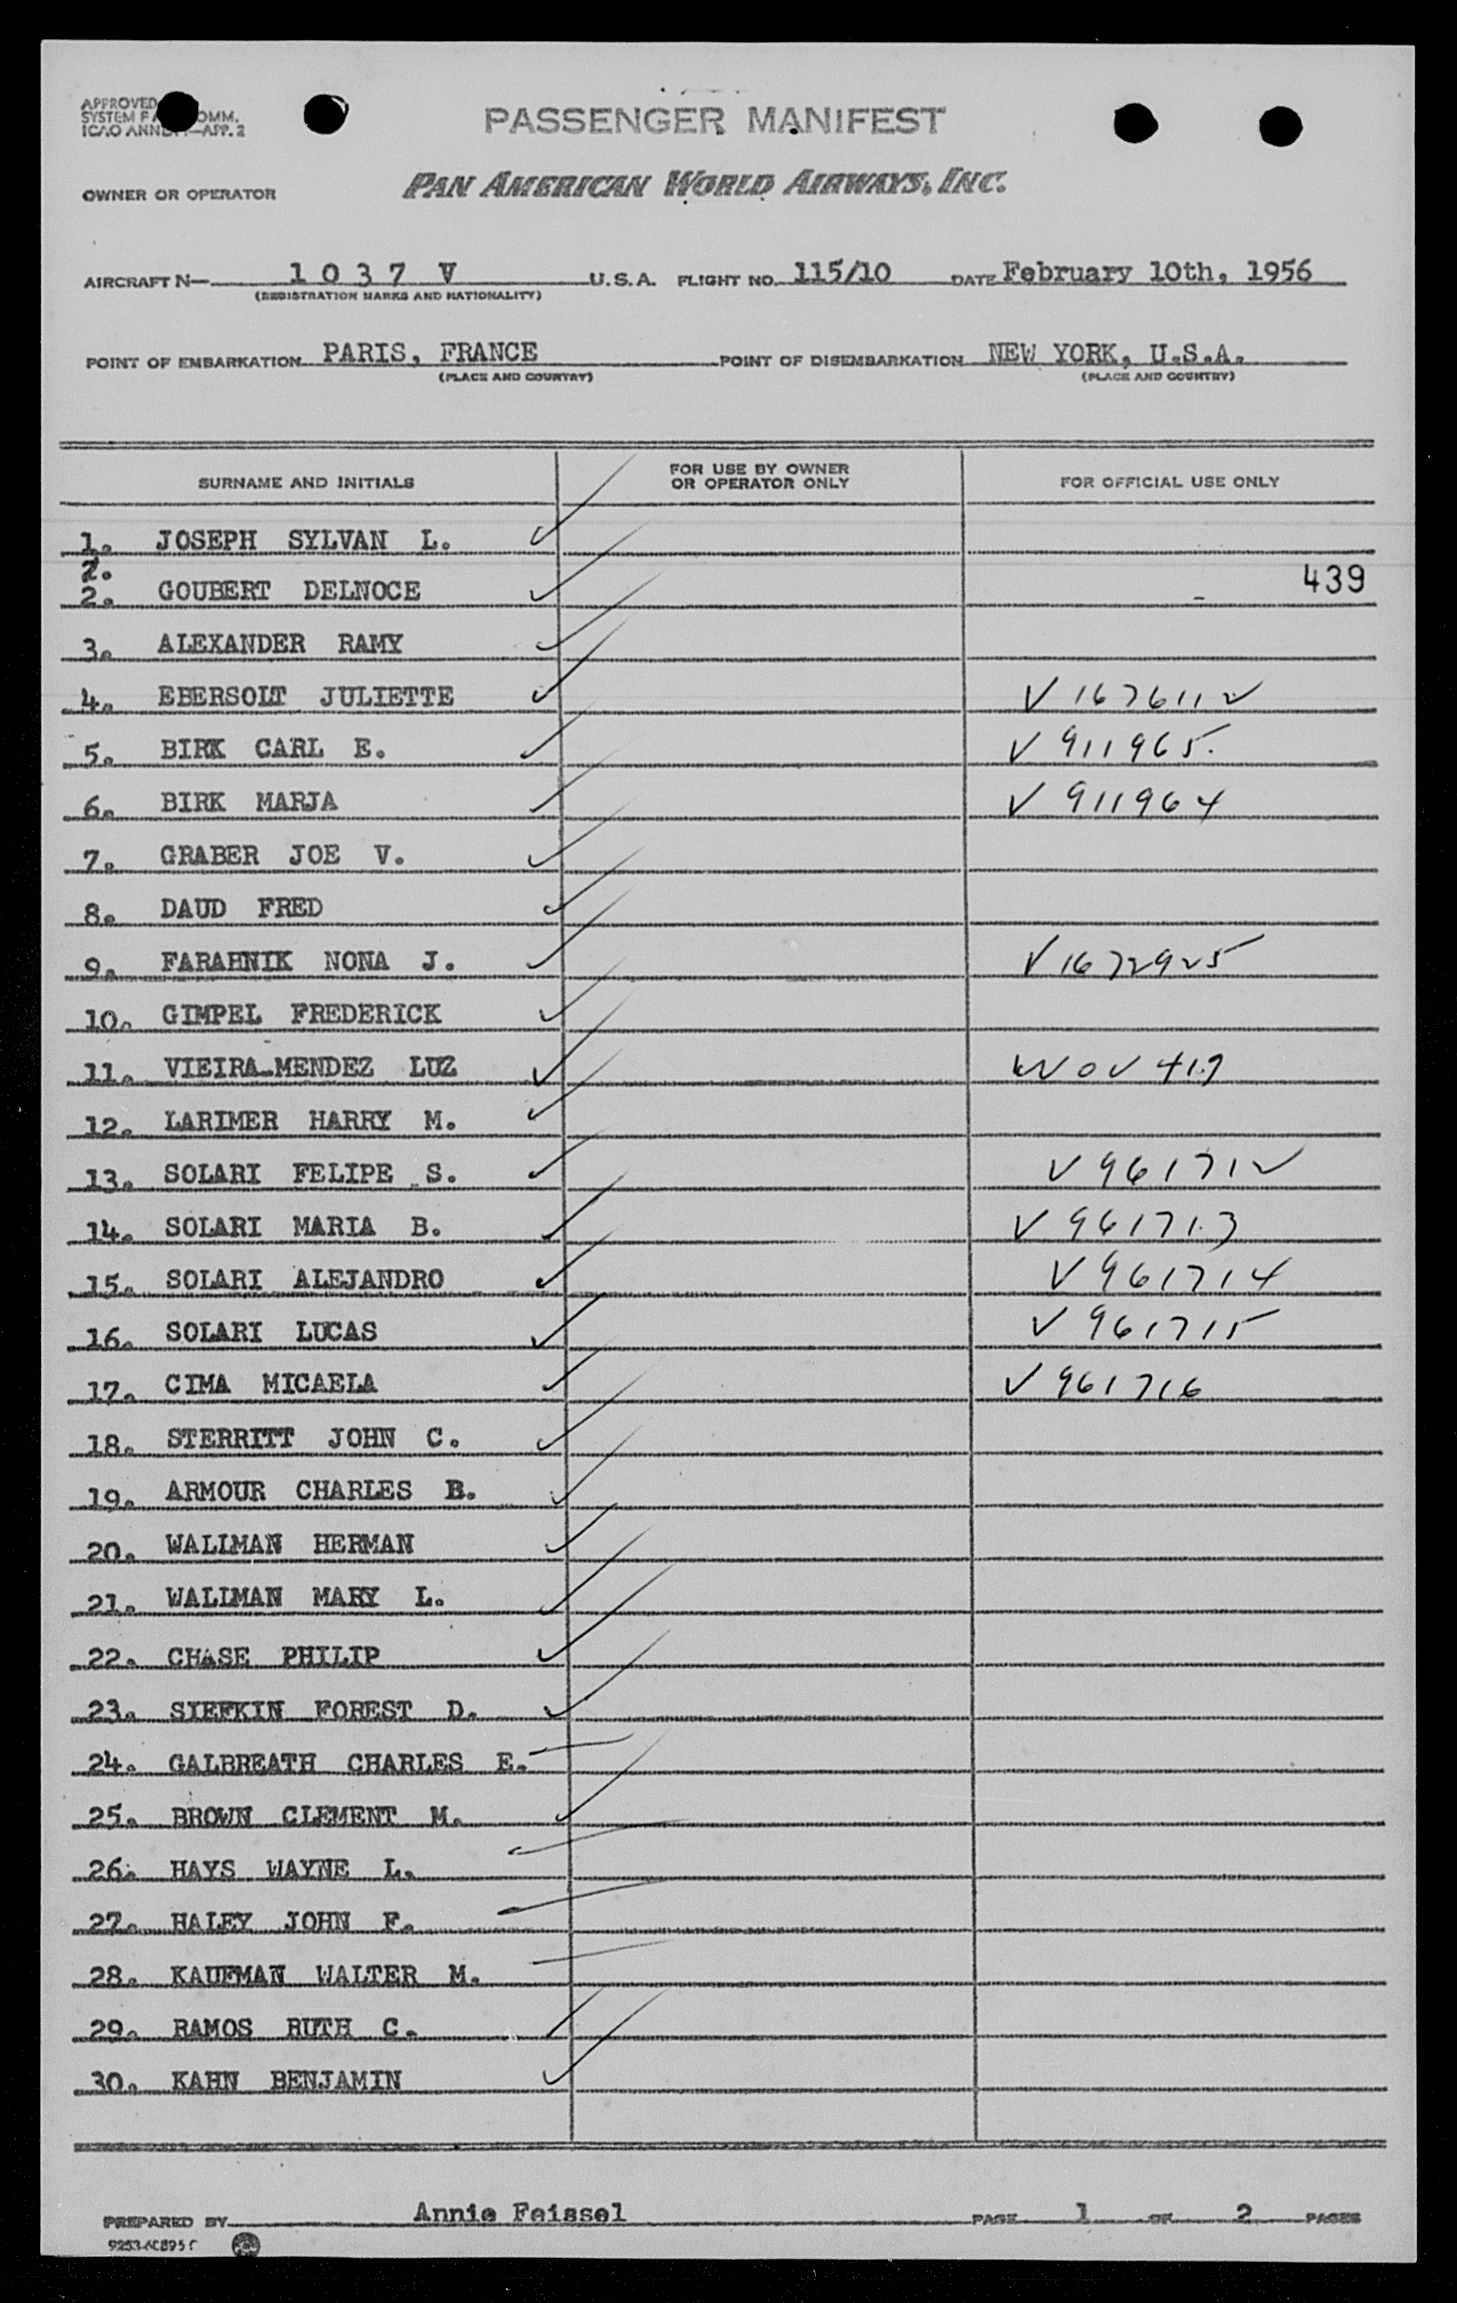 APPROVED
SYSTEM F OMM.
ICAO ANNE —APP. 2
PASSENGER MANIFEST
OWNER OR OPERATOR PAN AMERICAN WORLD AIRWAYS, INC.
AIRCRAFT N— 1 0 3 7 V U.S.A. FLIGHT NO. 115/10 DATE February 10th, 1956
(REGISTRATION MARKS AND NATIONALITY)
POINT OF EMBARKATION PARIS, FRANCE POINT OF DISEMBARKATION NEW YORK, U.S.A.
(PLACE AND COUNTRY) (PLACE AND COUNTRY)
SURNAME AND INITIALS FOR USE BY OWNER OR OPERATOR ONLY FOR OFFICIAL USE ONLY
1. JOSEPH SYLVAN L.
2.
2. GOUBERT DELNOCE 439
3. ALEXANDER RAMY
4. EBERSOLT JULIETTE V 1676112
5. BIRK CARL E. V 911965.
6. BIRK MARJA V 911964
7. GRABER JOE V.
8. DAUD FRED
9. FARAHNIK NONA J. V 1672925
10. GIMPEL FREDERICK
11. VIEIRA-MENDEZ LUZ
12. LARIMER HARRY M.
13. SOLARI FELIPE S. V 961712
14. SOLARI MARIA B. V 961713
15. SOLARI ALEJANDRO V 961714
16. SOLARI LUCAS V 961715
17. CIMA MICAELA V 961716
18. STERRITT JOHN C.
19. ARMOUR CHARLES B.
20. WALLMAN HERMAN
21. WALLMAN MARY L.
22. CHASE PHILIP
23. SIEFKIN FOREST D.
24. GALBREATH CHARLES E.
25. BROWN CLEMENT M.
26. HAYS WAYNE L.
27. HALEY JOHN F.
28. KAUFMAN WALTER M.
29. RAMOS RUTH C.
30. KAHN BENJAMIN
PREPARED BY Annie Feissel PAGE 1 OF 2 PAGES